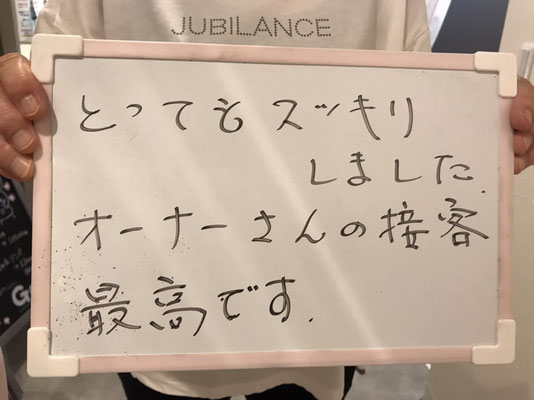 JUBILANCE
とってもスッキリ
しました.
オーナーさんの接客
最高です.